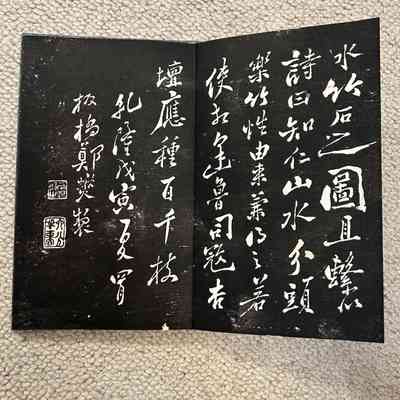 水竹石之圖且繫以
詩曰知仁山水分頭
樂竹性由來兼得之若
使相逢魯司寇杏
壇應種百千枝
乾隆戊寅夏
板橋鄭燮